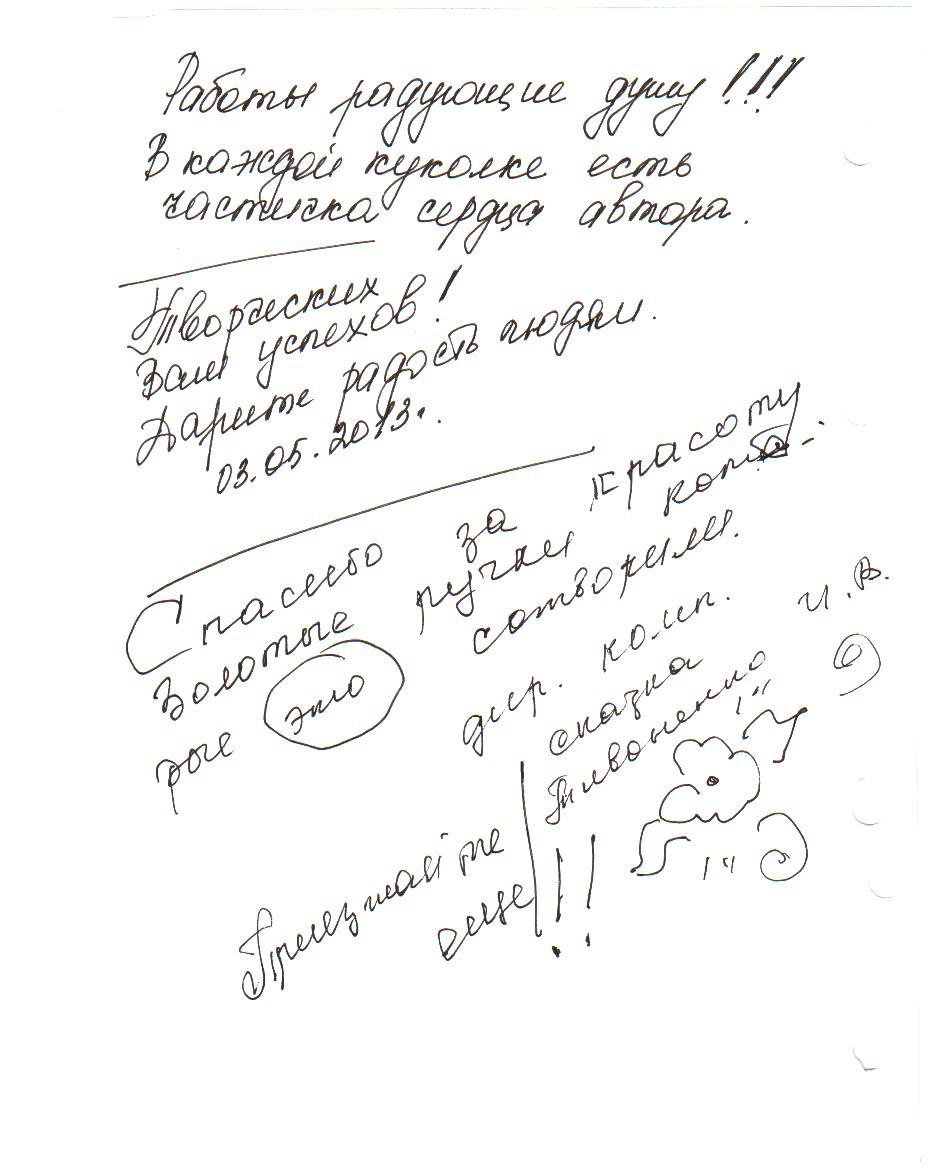 Работы радующие душу!!!
В каждой куколке есть
частичка сердца автора.
Творческих
Вам успехов!
Дарите радость людям.
03.05.2013г.
Спасибо за красоту
Золотые ручки кото-
рые это сотворили.
дир. комп.
сказка
Пивоненко И.В.
Приезжайте
еще!!!